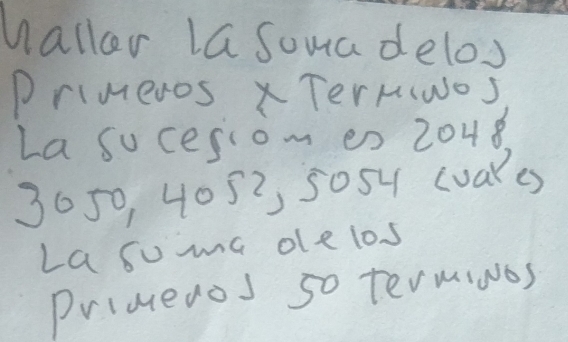 Hallar la suma de los
Primeros x Terminos,
La sucesion es 2048,
3050, 4052, 5054 cual es
La suma de los
Primeros 50 terminos